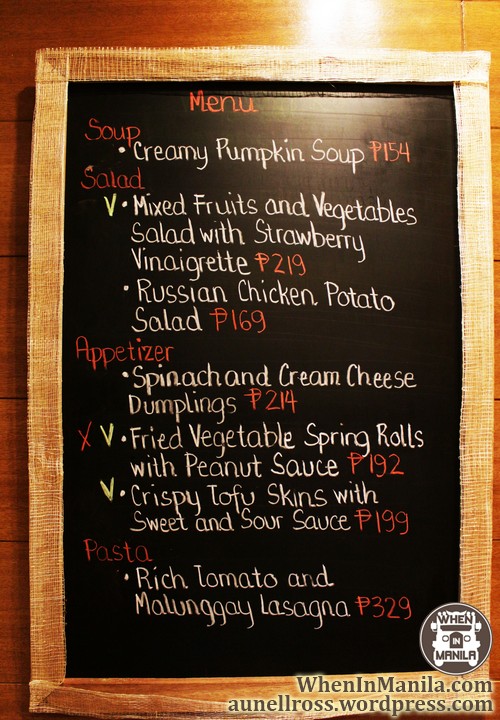 Menu
Soup
• Creamy Pumpkin Soup ₱154
Salad
V • Mixed Fruits and Vegetables
Salad with Strawberry
Vinaigrette ₱219
• Russian Chicken Potato
Salad ₱169
Appetizer
• Spinach and Cream Cheese
Dumplings ₱214
X V • Fried Vegetable Spring Rolls
with Peanut Sauce ₱192
V • Crispy Tofu Skins with
Sweet and Sour Sauce ₱199
Pasta
• Rich Tomato and
Malunggay Lasagna ₱329
WHEN
IN
MANILA
WhenInManila.com
aunellross.wordpress.com